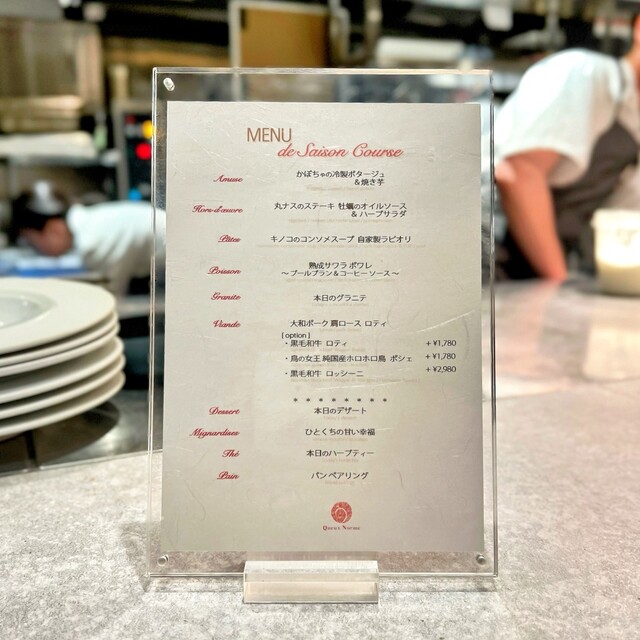 MENU
de Saison Course
Amuse かぼちゃの冷製ポタージュ
&焼き芋
Hors-d'œuvre 丸ナスのステーキ 牡蠣のオイルソース
& ハーブサラダ
Pâtes キノコのコンソメスープ 自家製ラビオリ
Poisson 熟成サワラ ポワレ
~ ブールブラン&コーヒーソース ~
Granite 本日のグラニテ
Viande 大和ポーク 肩ロース ロティ
[ option ]
・黒毛和牛 ロティ + ¥1,780
・鳥の女王 純国産ホロホロ鳥 ポシェ + ¥1,780
・黒毛和牛 ロッシーニ + ¥2,980
* * * * * * * *
Dessert 本日のデザート
Mignardises ひとくちの甘い幸福
Thé 本日のハーブティー
Pain パン ペアリング